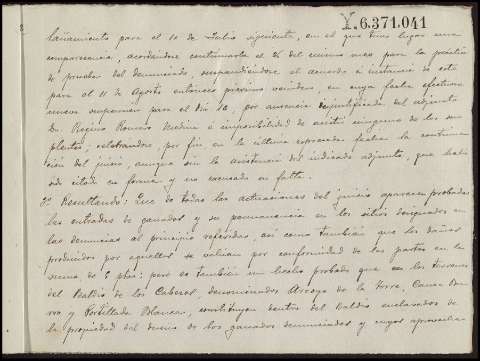 Y.6.371.041
ñalamiento para el 10 de Julio siguiente, en el que tuvo lugar una
comparecencia, acordándose continuarla el 26 del mismo mes para la práctica
de pruebas del denunciado, suspendiéndose el acuerdo á instancia de este
para el 11 de Agosto entonces próximo venidero, en cuya fecha
nueva suspension para el día 12, por ausencia injustificada del adjunto
Dn. Regino Romero Medina é imposibilidad de asistir ninguno de los su-
plentes; celebrandose, por fin en la última expresada fecha la continua-
ción del juicio, aunque sin la asistencia del indicado adjunto, que había
sido citado en forma y no excusado su falta.
Resultando: Que de todas las actuaciones del juicio aparecen probadas
las entradas de ganados y su permanencia en los sitios designados en
las denuncias al principio referidas, así como también que los daños
producidos por aquellos se valúan por conformidad de las partes en la
suma de 6 ptas; pero es también un hecho probado que en los terrenos
del Baldío de los Caberos, denominados Arroyo de la Torre,
y Portillada Blanca, constituyen dentro del Baldío enclavados de
la propiedad del dueño de los ganados denunciados y cuyos aprovecha-